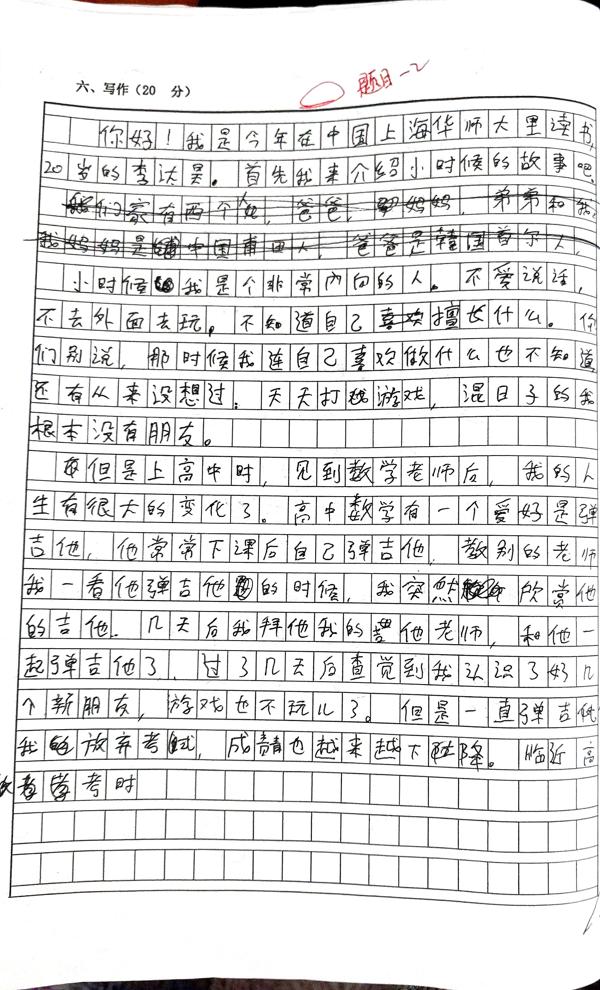 六、写作(20 分)
题目-2
你好!我是今年在中国上海华师大里读书,
20岁的李达昊。首先我来介绍小时候的故事吧
我们家有两个人,爸爸,妈妈,弟弟和我
我妈妈是中国莆田人,爸爸是韩国首尔人,
小时候我是个非常内向的人。不爱说话,
不去外面去玩。不知道自己喜欢擅长什么。你
们别说,那时候我连自己喜欢做什么也不知道
还有从来没想过。天天打游戏,混日子的我
根本没有朋友。
但是上高中时,见到数学老师后,我的人
生有很大的变化了。高中数学有一个爱好是弹
吉他,他常常下课后自己弹吉他,教别的老师
我一看他弹吉他的时候,我突然欣赏他
的吉他.几天后我拜他我的吉他老师,和他一
起弹吉他了.过了几天后查觉到我认识了好几
个新朋友,游戏也不玩儿了。但是一直弹吉他
我放弃考试,成蹟也越来越下降。临近高
考时